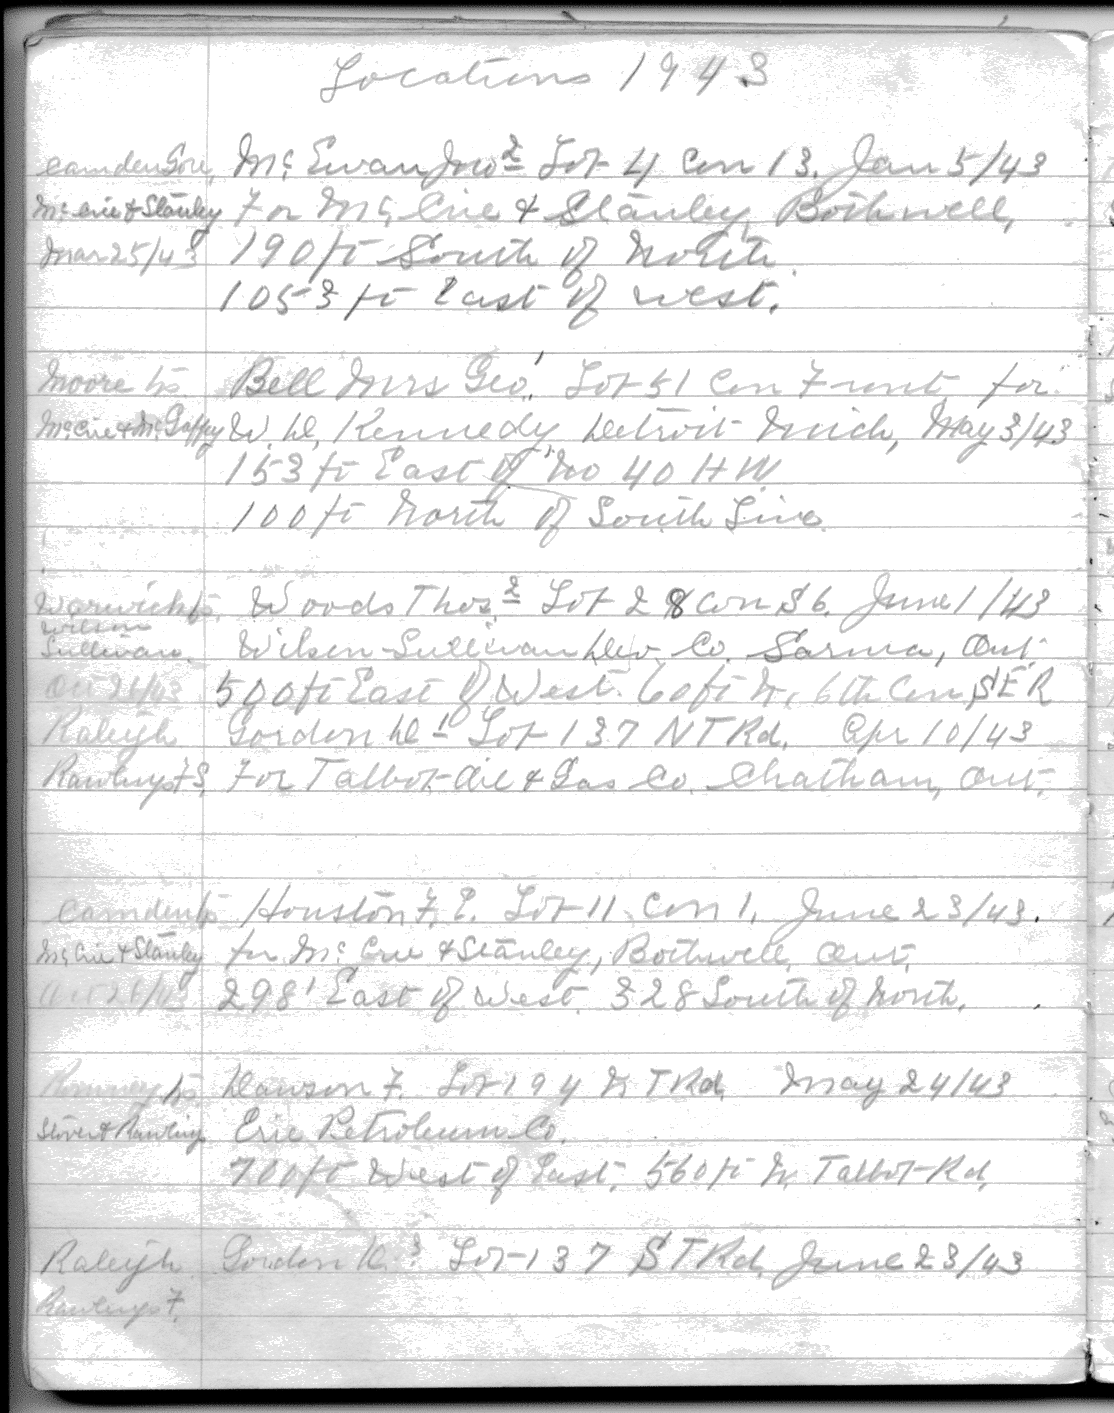 Locations 1943
Camden Gore, Mc Ewan Jno 2 Lot 4 Con 13. Jan 5/43
Mc Crie & Stanley For Mc Crie & Stanley, Bothwell,
Mar 25/43 190 ft South of North.
1053 ft East of West.
Moore tp. Bell Mrs Geo. 1 Lot 51 Con Front, for
Mc Crie & Mc Gaffey W. D. Kennedy, Detroit Mich, May 3/43
153 ft East of No 40 HW
100 ft North of South Line
Warwick tp. Woods Thos. 2 Lot 28 Con S 6. June 1/43
Wilson
Sullivan. Wilson-Sullivan Dev. Co. Sarnia, Ont
Oct 26/43 500 ft East of West. 60 ft N. 6th Con, S E R
Raleigh Gordon D 1 Lot 137 NTRd. Apr 10/43
Rawlings F S. For Talbot Oil & Gas Co. Chatham, Ont.
Camden tp Houston F. E. Lot 11 Con 1. June 23/43.
Mc Crie & Stanley for Mc Crie & Stanley, Bothwell, Ont,
298' East of West. 328 South of North.
Romney tp. Dawson F. Lot 194 N TRd. May 24/43
& Rawlings Erie Petroleum Co.
700 ft West of East. 560 ft N. Talbot Rd.
Raleigh Gordon D. 3 Lot 137 STRd. June 23/43
Rawlings F.